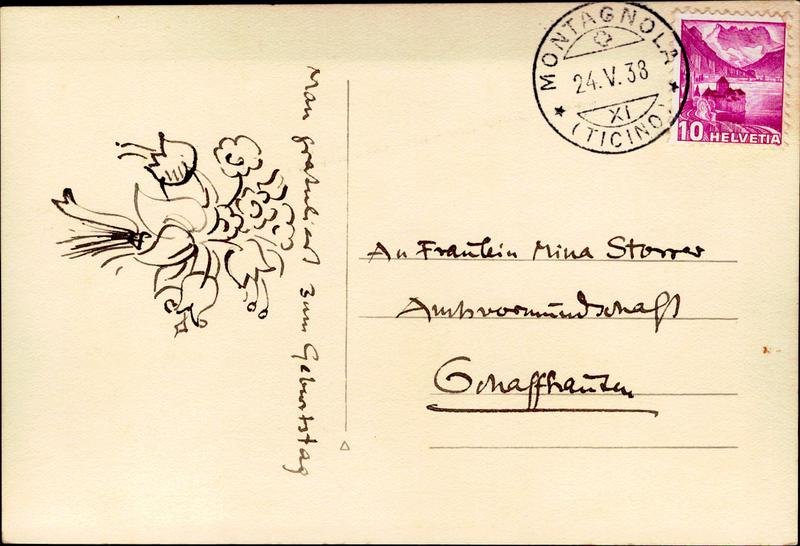 Man gratuliert zum Geburtstag
MONTAGNOLA
24.V.38
XI
(TICINO)
10 HELVETIA
An Fräulein Mina Storrer
Amtsvormundschaft
Schaffhausen